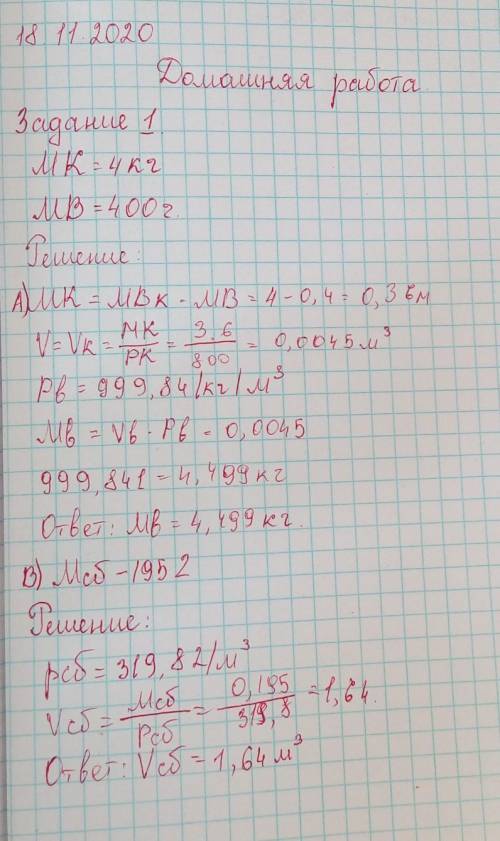 18.11.2020
Домашняя работа
Задание 1.
МК = 4кг
МВ = 400г.
Решение:
А) МК = МВк - МВ = 4 - 0,4 = 0,3 6м
V = Vк = МК/РК = 3.6/800 = 0,0045м³
Рв = 999,84/кг/м³
Мв = Vв · Рв = 0,0045
999,841 = 4,499кг
Ответ: Мв = 4,499кг.
В) Мсб - 195г
Решение:
рсб = 319,8г/м³
Vсб = Мсб/Рсб = 0,195/319,8 = 1,64.
Ответ: Vсб = 1,64м³